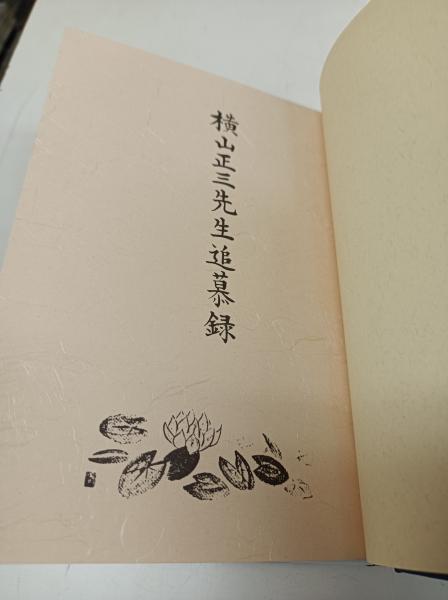 横山正三先生追慕録